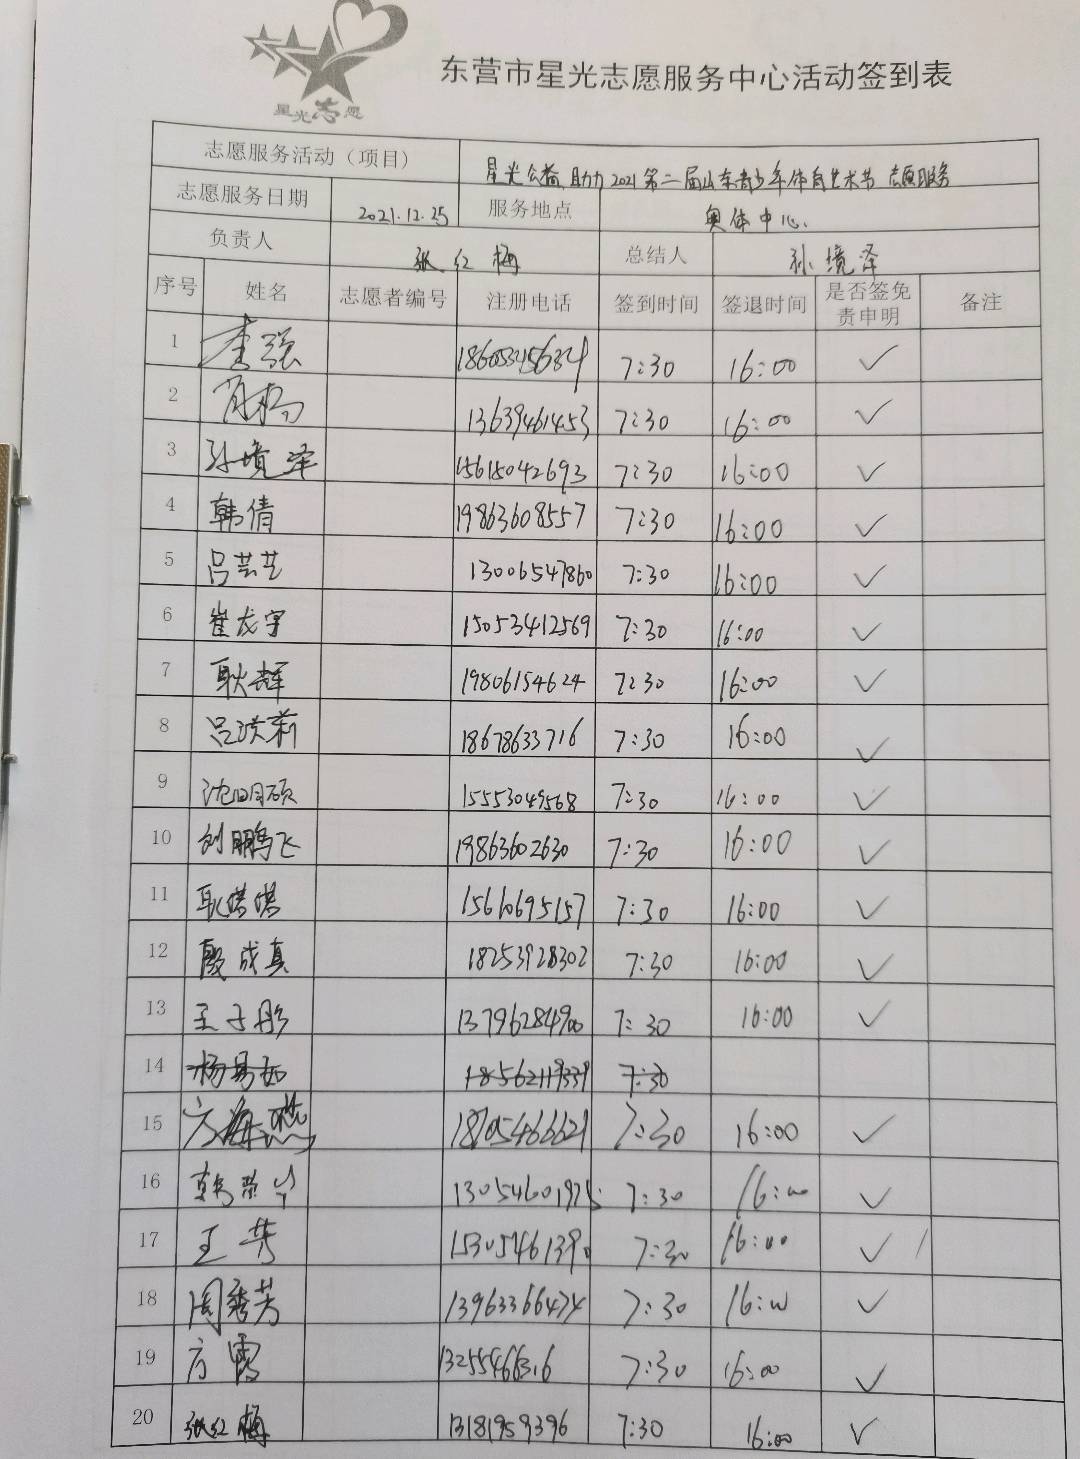 星光志愿
东营市星光志愿服务中心活动签到表
志愿服务活动（项目） 星光公益助力2021第二届山东青少年体育艺术节 志愿服务
志愿服务日期 2021.12.25 服务地点 奥体中心.
负责人 张红梅 总结人 孙境泽
序号 姓名 志愿者编号 注册电话 签到时间 签退时间 是否签免责申明 备注
1 李强 7:30 16:00 ✓
2 肖杨 13639461453 7:30 16:00 ✓
3 孙境泽 15615042693 7:30 16:00 ✓
4 韩倩 19863608557 7:30 16:00 ✓
5 吕芸芸 13006547860 7:30 16:00 ✓
6 崔龙宇 15053412569 7:30 16:00 ✓
7 耿喆辉 19806154624 7:30 16:00 ✓
8 吕洪莉 18678633716 7:30 16:00 ✓
9 沈明硕 15553049568 7:30 16:00 ✓
10 刘鹏飞 19863602630 7:30 16:00 ✓
11 耿 15610695157 7:30 16:00 ✓
12 殷成真 18253928302 7:30 16:00 ✓
13 王子彤 13796284900 7:30 16:00 ✓
14 杨易如 18562119339 7:30
15 方海燕 18705466621 7:30 16:00 ✓
16 韩荣华 7:30 16:00 ✓
17 王芳 15305461390 7:30 16:00 ✓
18 周秀芳 13963366474 7:30 16:00 ✓
19 方雪 13255466316 7:30 16:00 ✓
20 张红梅 13181959396 7:30 16:00 ✓